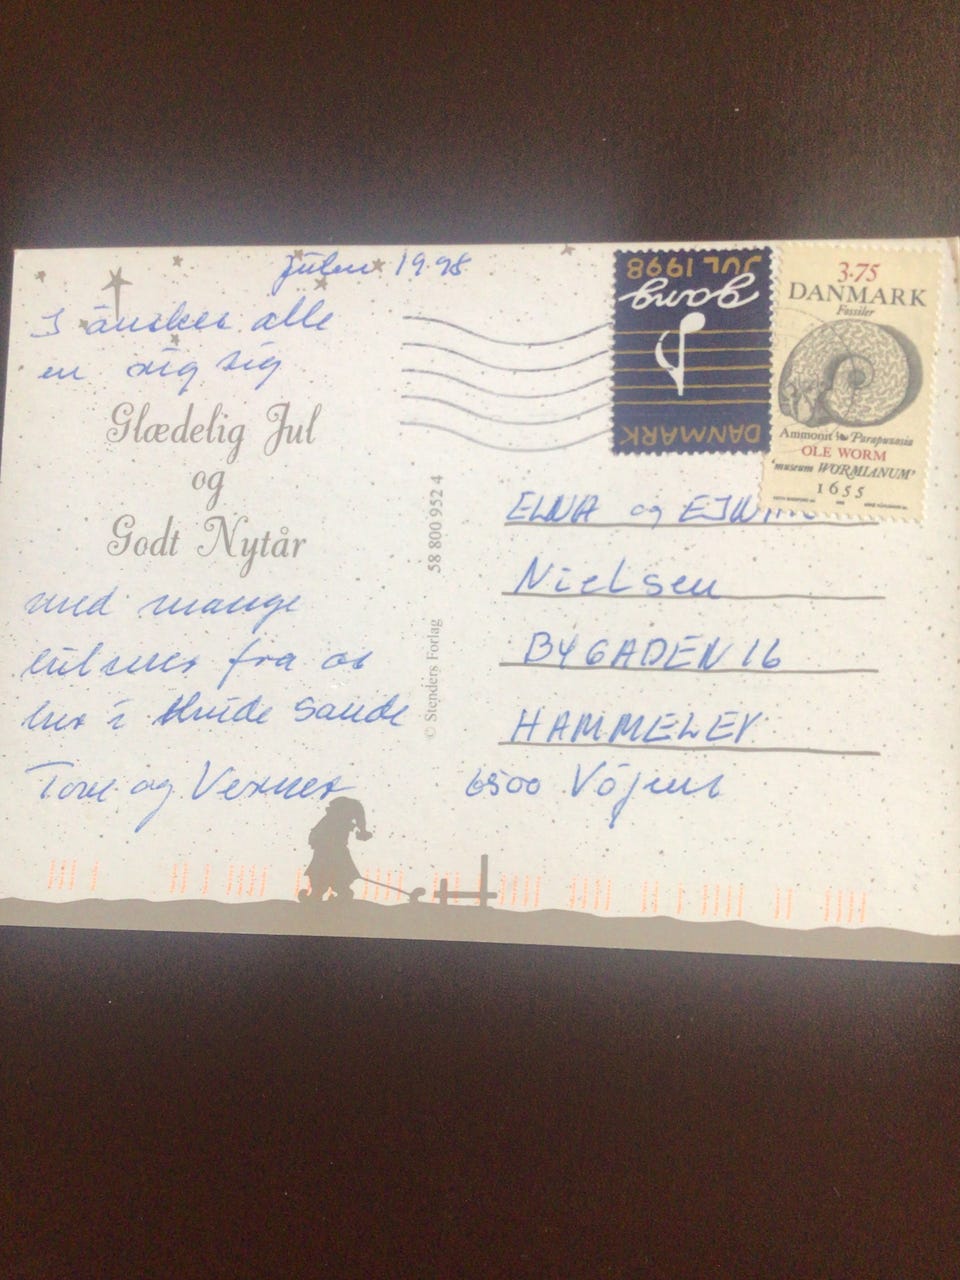 Julen 1998
I önskes alle
en rig rig
Glædelig Jul
og
Godt Nytår
med mange
hilsner fra os
her i Hvide Sande
Tove og Verner
© Stenders Forlag 58 800 952 4
JUL 1998
DANMARK
3.75
DANMARK
Fossiler
Ammonit Parapuzosia
OLE WORM
'museum WORMIANUM'
1655
ELNA og
Nielsen
BYGADEN 16
HAMMELEV
6500 Vojens